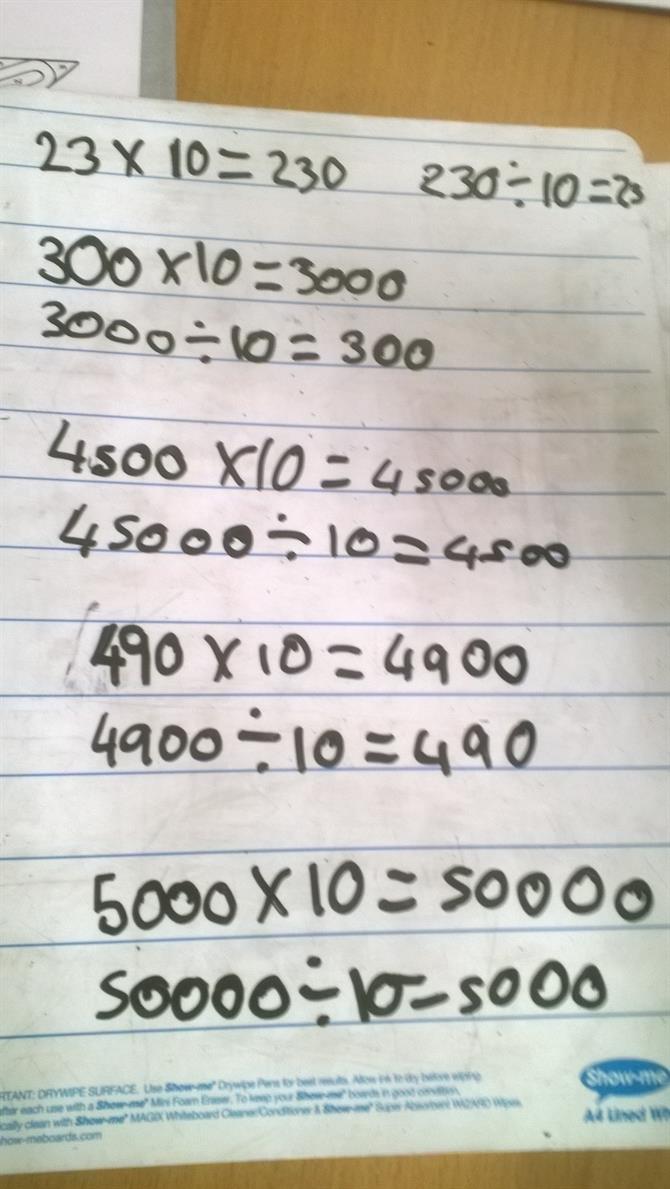 23 x 10 = 230 230 ÷ 10 = 23
300 x 10 = 3000
3000 ÷ 10 = 300
4500 x 10 = 45000
45000 ÷ 10 = 4500
490 x 10 = 4900
4900 ÷ 10 = 490
5000 x 10 = 50000
50000 ÷ 10 = 5000
RTANT: DRYWIPE SURFACE. Use Show-me® Drywipe Pens for best results. Allow ink to dry before wiping.
after each use with a Show-me® Mini Foam Eraser. To keep your Show-me® boards in good condition,
ically clean with Show-me® MAGIX Whiteboard Cleaner/Conditioner & Show-me® Super Absorbent WIZARD Wipes.
how-meboards.com
Show-me
A4 Lined W